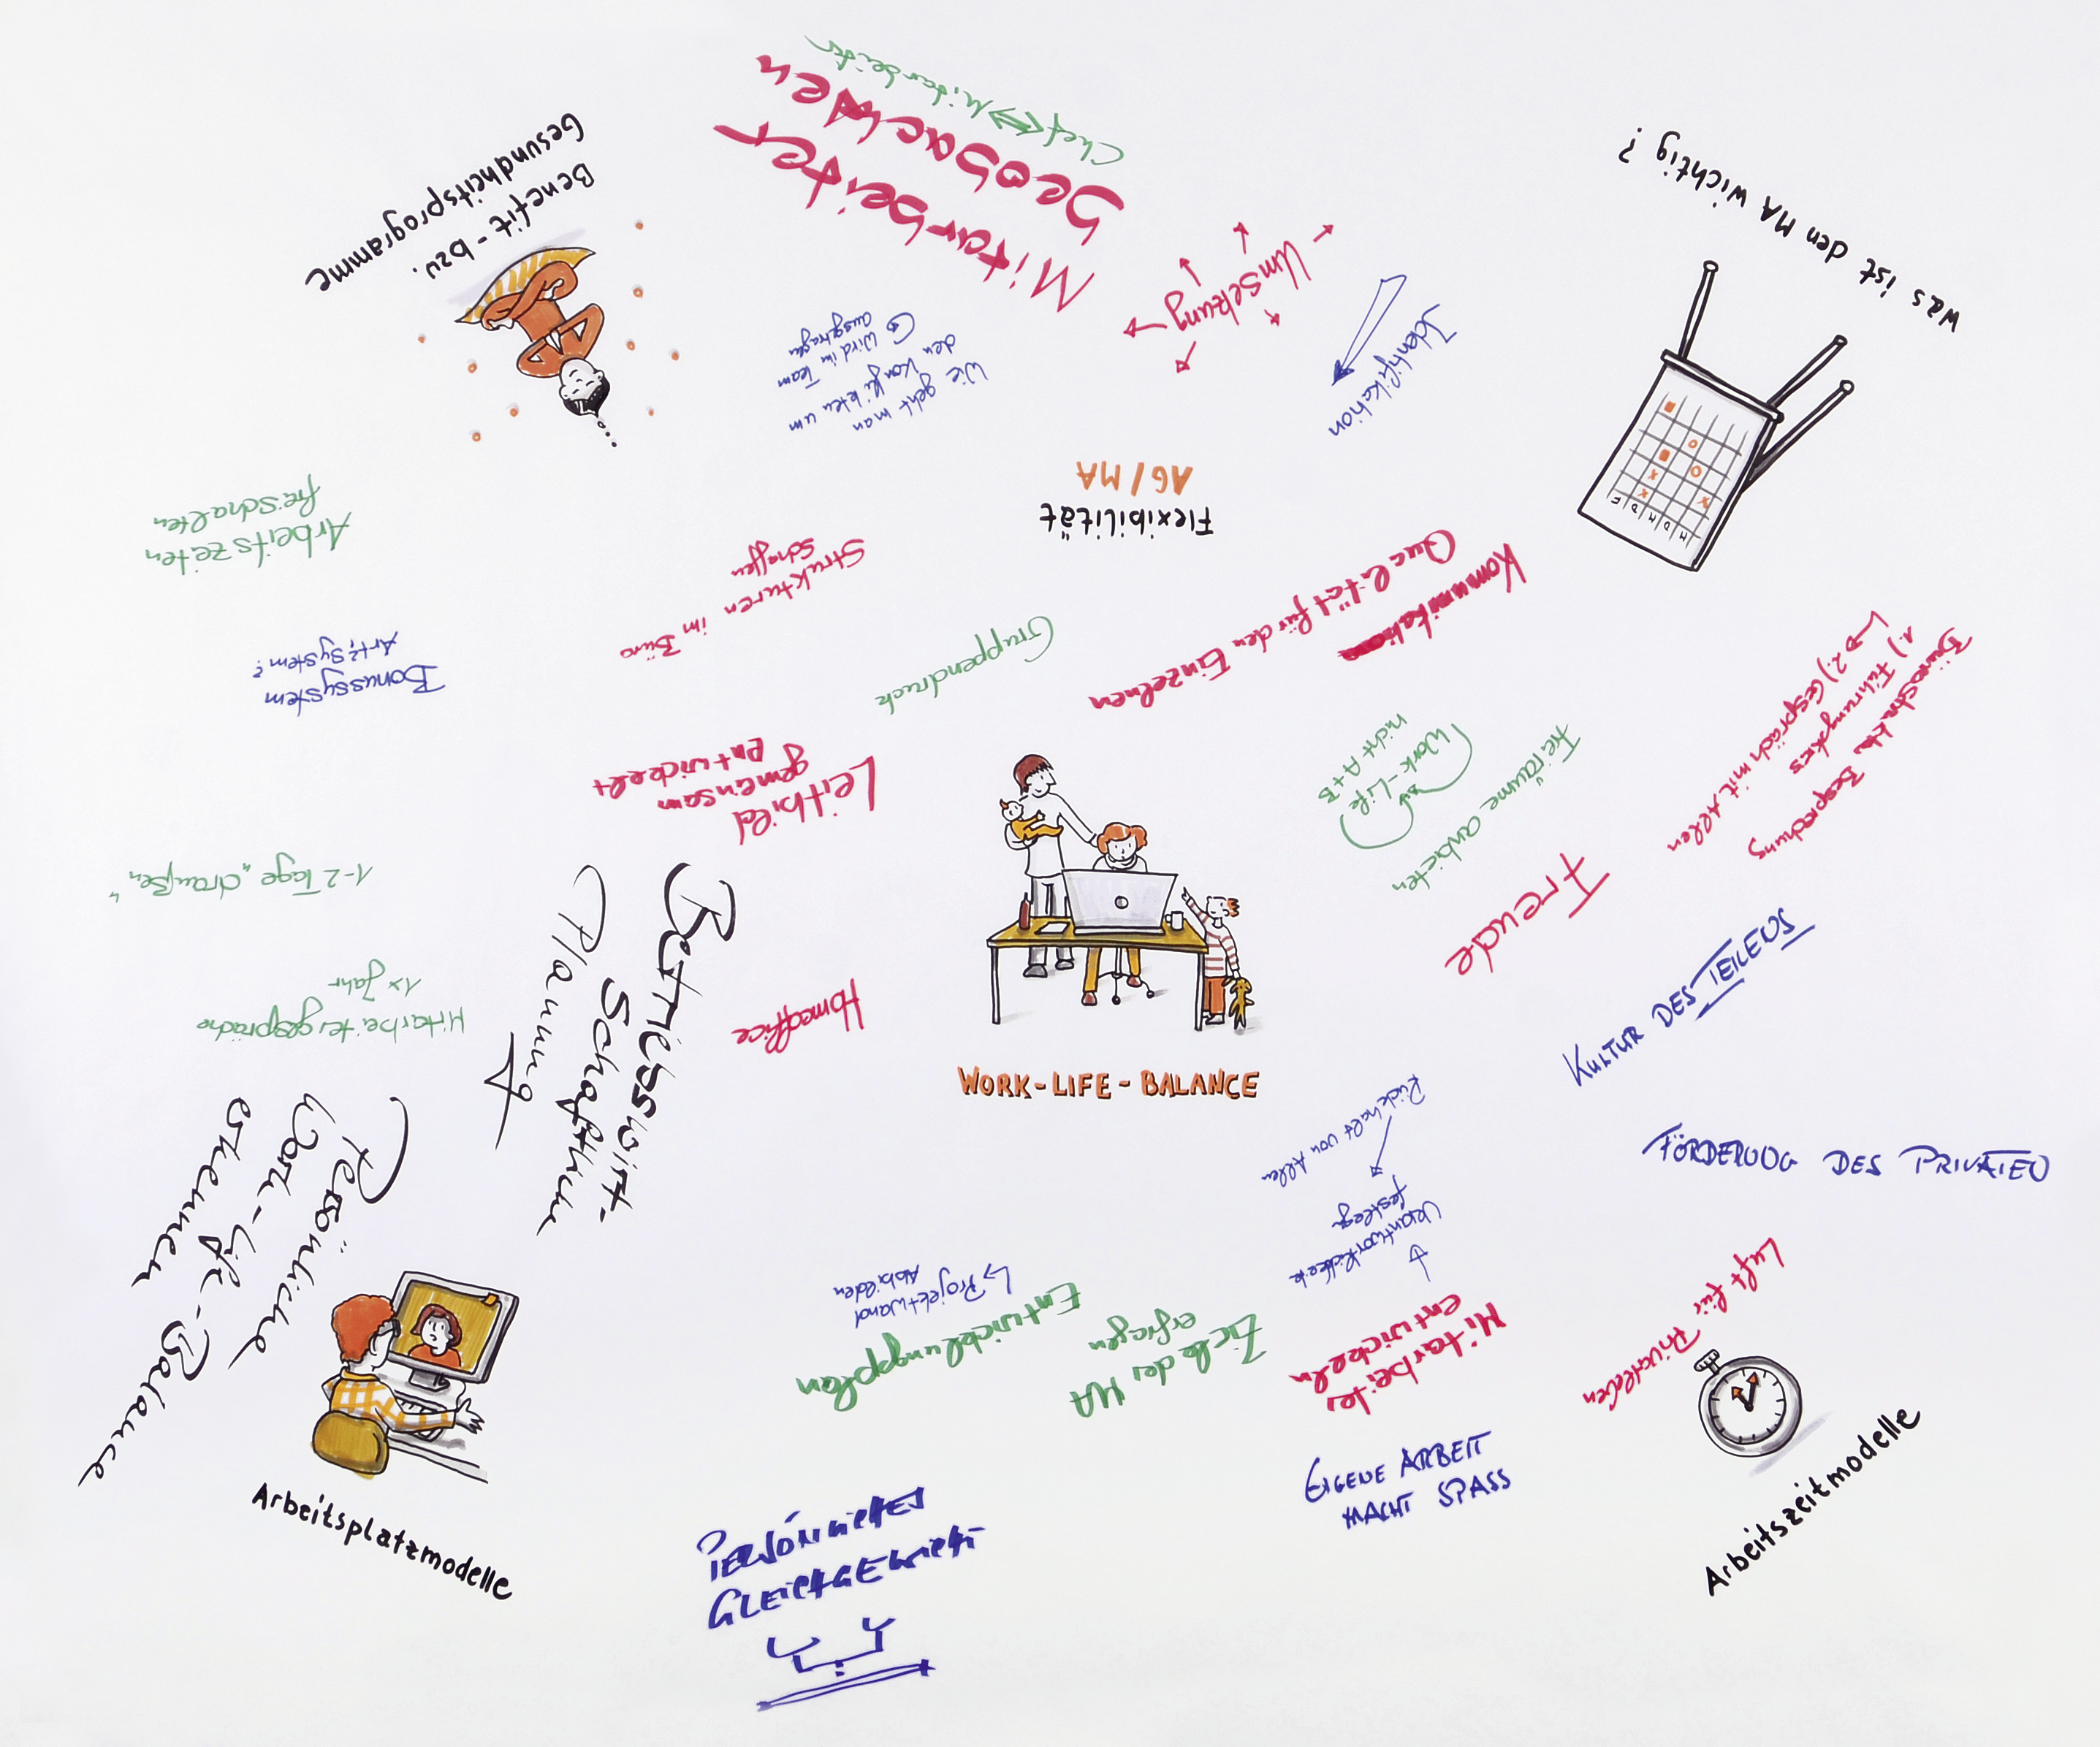 Chef ⇔ Mitarbeiter
Mitarbeiter
beobachten
Benefit- bzw.
Gesundheitsprogramme
Was ist den MA wichtig?
M D M D F
Umsetzung
Identifikation
Wie geht man
den Konflikten um
wird im Team
ausgetragen
Flexibilität
AG/MA
Arbeitszeiten
freischalten
Strukturen im Büro
schaffen
Gruppendruck
Kommunikation
Qualität für den Einzelnen
Bürostruktur Besprechung
1.) Führungskreis
→ 2.) Gespräch mit Allen
Bonussystem
Art? System?
Leitbild
gemeinsam
entwickelt
Work-Life
nicht A+B
Freiräume anbieten
Freude
1-2 Tage „draußen"
Mitarbeitergespräche
1x Jahr
Betriebswirt-
schaftliche
Planung
Homeoffice
WORK-LIFE-BALANCE
KULTUR DES TEILENS
FÖRDERUNG DES PRIVATEN
Persönliche
Work-Life-Balance
erkennen
Rückhalt von Allen
Verantwortlichkeit
festlegen
Mitarbeiter
entwickeln
Ziele der MA
erfragen
Entwicklungsplan
↳ Projektwand
Abbilden
Luft für Privatleben
Arbeitsplatzmodelle
PERSÖNLICHES
GLEICHGEWICHT
EIGENE ARBEIT
MACHT SPASS
Arbeitszeitmodelle